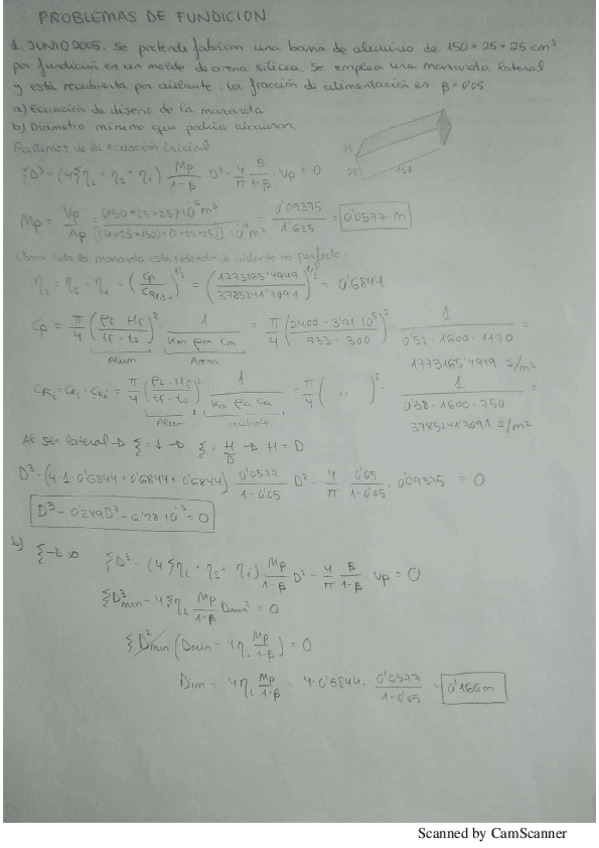 PROBLEMAS DE FUNDICION
1. JUNIO 2005. Se pretende fabricar una barra de aluminio de 150 × 25 × 25 cm³
por fundición en un molde de arena silícea. Se emplea una mazarota lateral
y está recubierta por aislante. La fracción de alimentación es β = 0'05
a) Ecuación de diseño de la mazarota
b) Diámetro mínimo que podría alcanzar.
Partimos de la ecuación inicial
25
25
150
ξD³ - (4ξη_L + η_s + η_i) Mp/(1-β) · D² - 4/π β/(1-β) · Vp = 0
Mp = Vp/Ap = (150×25×25)10⁻⁶ m³ / [(4×25×150)+(2×25×25)] 10⁻⁴ m² = 0'09375/1'625 = 0'0577 m
toda la mazarota está aislante no perfecto:
η_L = η_s = η_i = (Cp/C_R)^1/2 = (1773165'4949/3785241'7091)^1/2 = 0'6844
Cp = π/4 (ρs Hf/(tf - to))² · 1/(Km ρm Cm) = π/4 (2400 · 3'91 · 10⁵/(933 - 300))² · 1/(0'52 · 1600 · 1170) =
Alum Arena 1773165'4949 s/m²
C_R = π/4 (ρs · Hf/(tf - to))² 1/(Ka ρa Ca) = π/4 ( ,, )² · 1/(0'38 · 1600 · 750) =
Alum aislante 3785241'7091 s/m²
Al ser lateral → ξ = 1 → ξ = H/D → H = D
D³ - (4 · 1 · 0'6844 + 0'6844 + 0'6844) 0'0577/(1-0'05) D² - 4/π 0'05/(1-0'05) · 0'09375 = 0
D³ - 0'249D² - 6'28 · 10⁻³ = 0
b) ξ → ∞ ξD³ - (4ξη_L + η_s + η_i) Mp/(1-β) D² - 4/π β/(1-β) · Vp = 0
ξD³min - 4ξη_L Mp/(1-β) Dmin² = 0
ξD²min (Dmin - 4η_L Mp/(1-β)) = 0
Dim = 4η_L Mp/(1-β) = 4 · 0'6844 · 0'0577/(1-0'05) = 0'166 m
Scanned by CamScanner